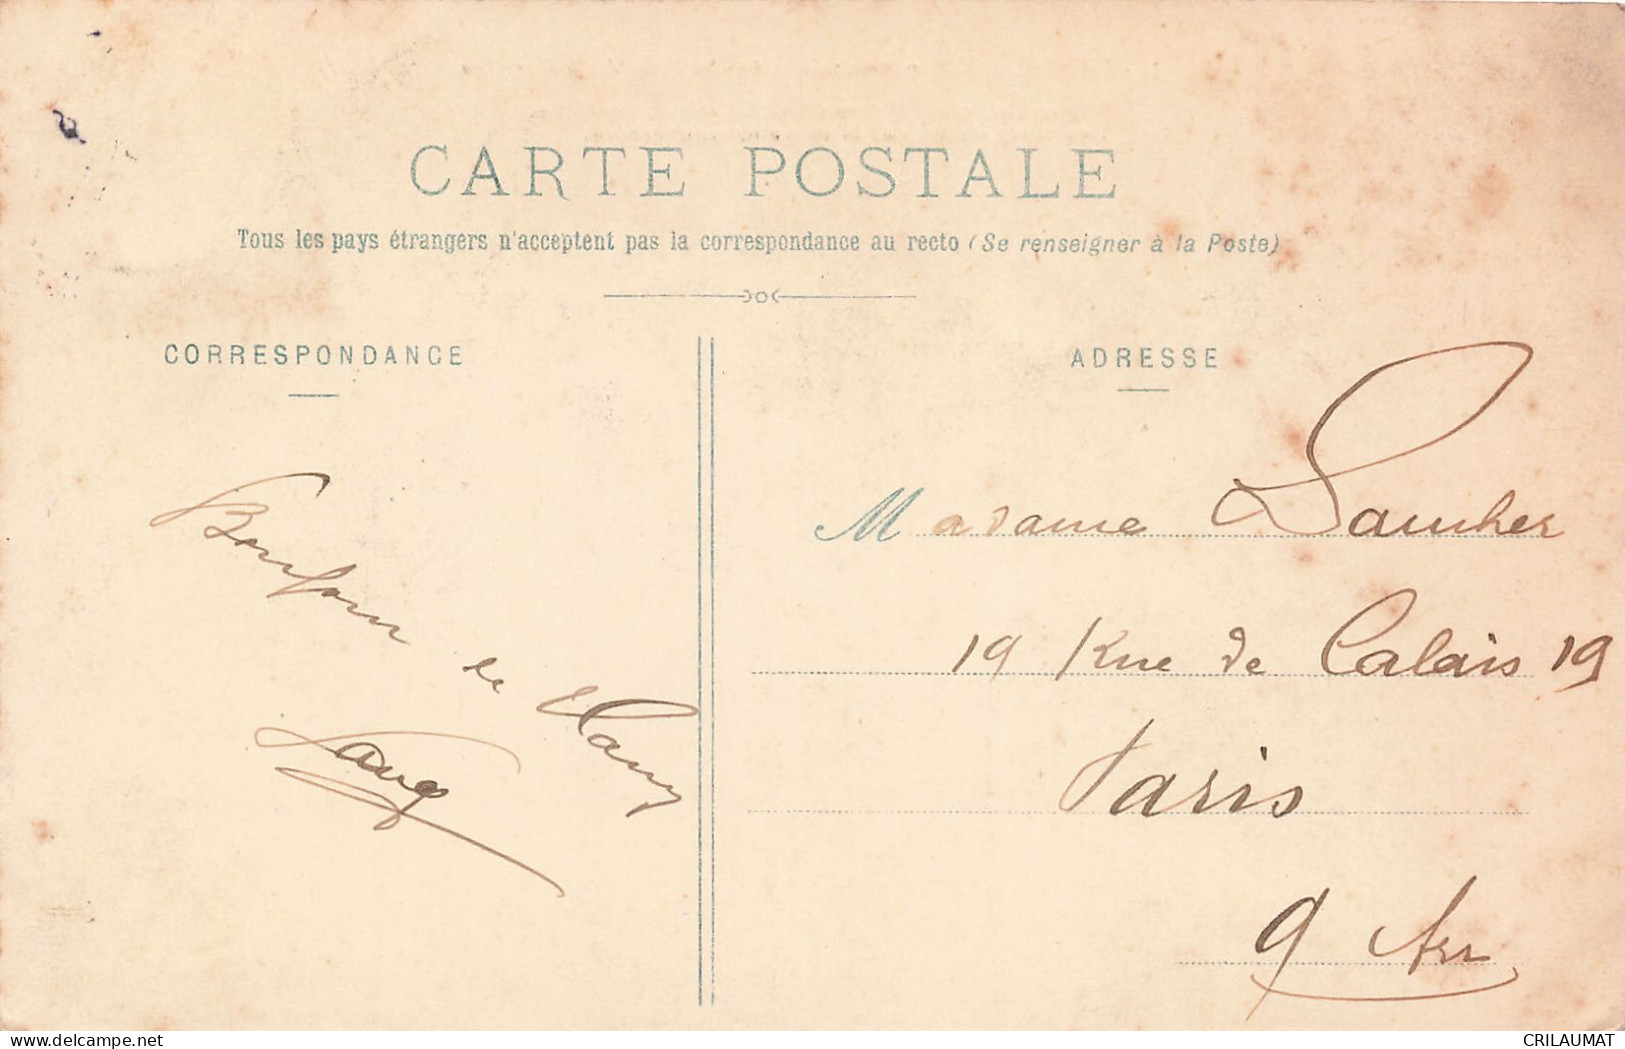 CARTE POSTALE
Tous les pays étrangers n'acceptent pas la correspondance au recto (Se renseigner à la Poste)
CORRESPONDANCE
ADRESSE
Bonjour
de
Madame
19 Rue de Calais 19
Paris
9 Arr
www.delcampe.net
CRILAUMAT